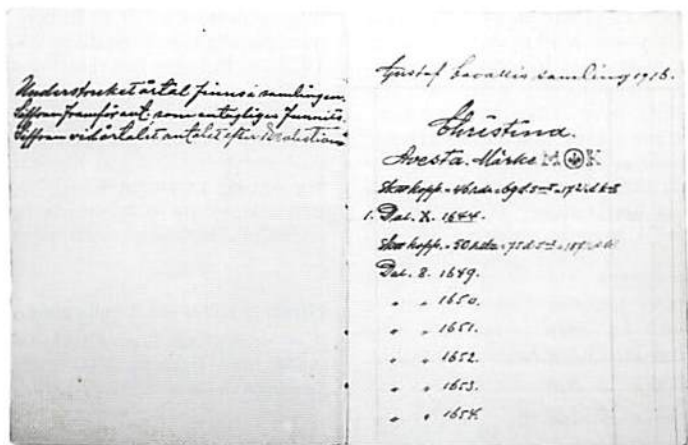 Understruket årtal finns i samlingen.
Siffran framför ant. som antagligen funnits.
Siffran vid årtalet antalet efter
Gustaf Cavallis samling 1918.
Christina.
Avesta. Märke M K
1. Dal. X. 1644.
Dal. 8. 1649.
" " 1650.
" " 1651.
" " 1652.
" " 1653.
" " 1654.